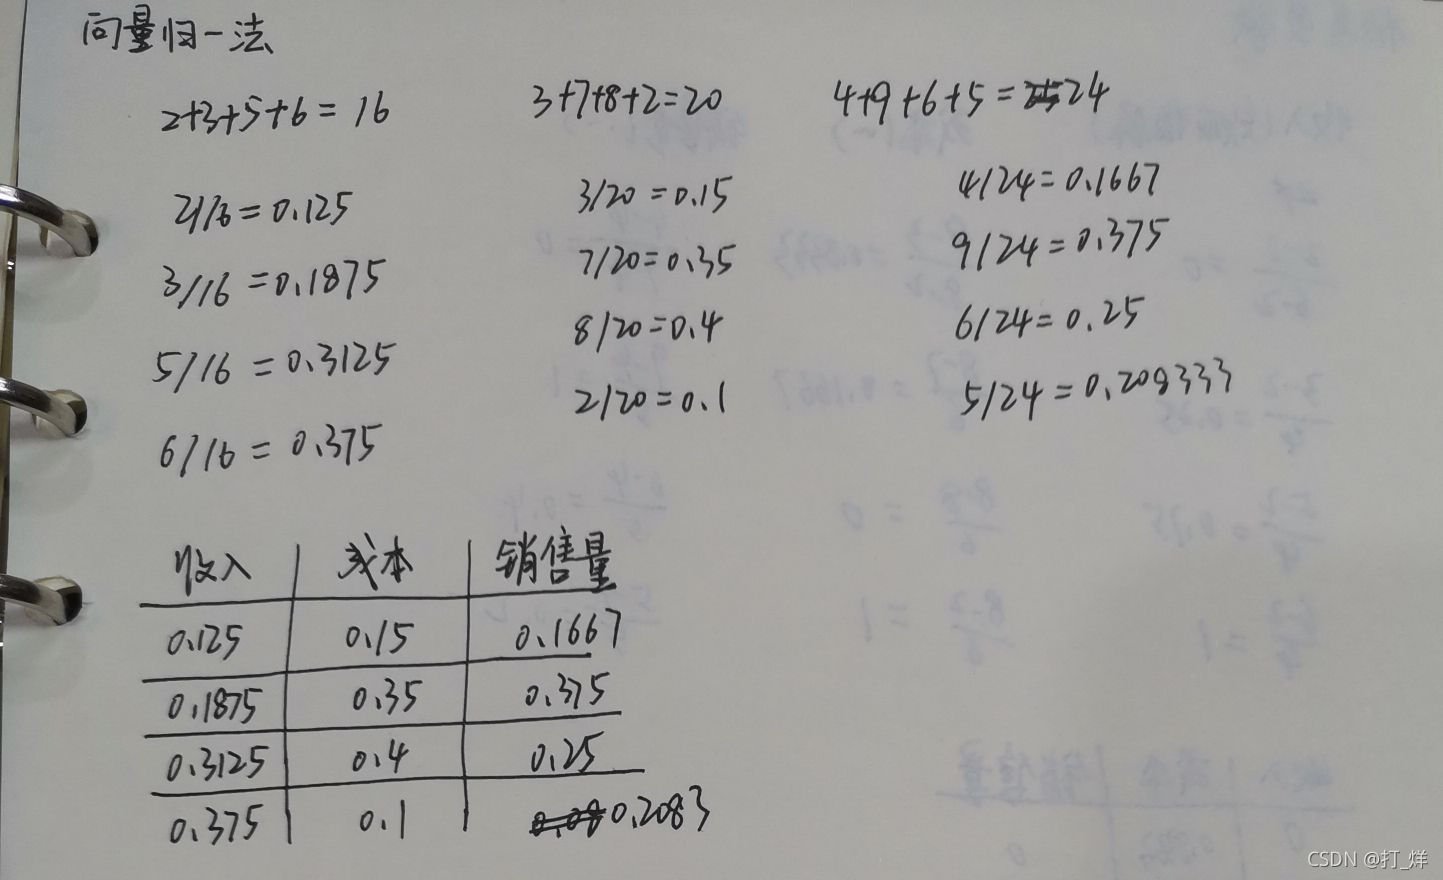 向量归一法
2+3+5+6=16
3+7+8+2=20
4+9+6+5=24
2/16=0.125
3/16=0.1875
5/16=0.3125
6/16=0.375
3/20=0.15
7/20=0.35
8/20=0.4
2/20=0.1
4/24=0.1667
9/24=0.375
6/24=0.25
5/24=0.208333
收入 成本 销售量
0.125 0.15 0.1667
0.1875 0.35 0.375
0.3125 0.4 0.25
0.375 0.1 0.2083
CSDN @打_烊